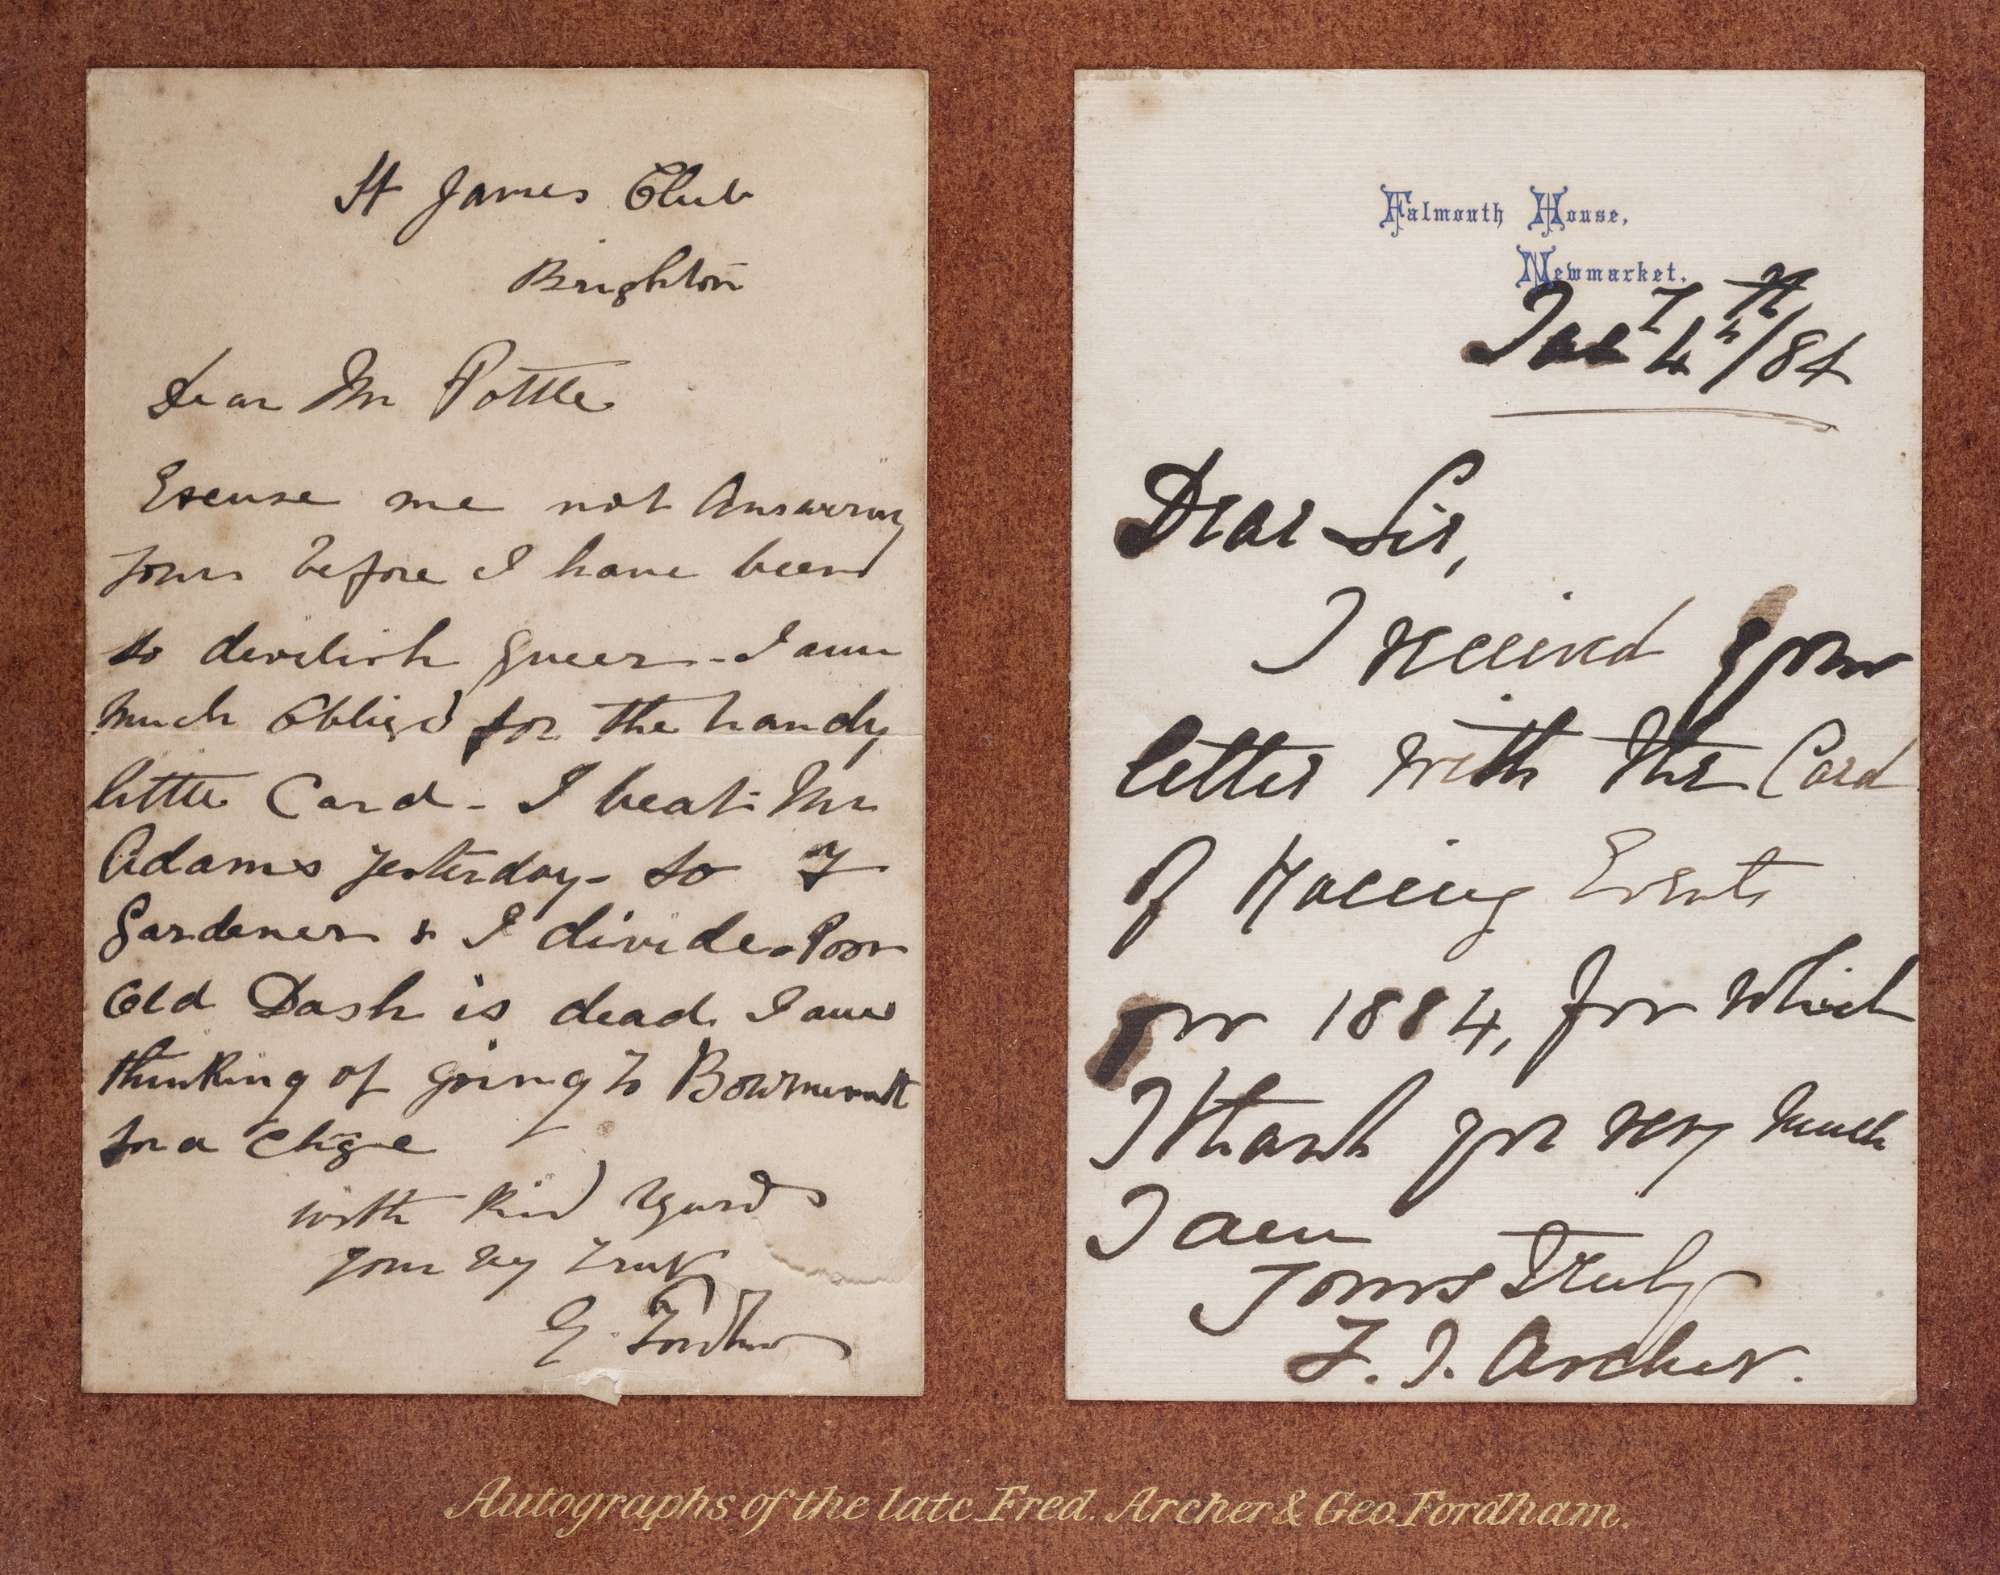 St James Club
Brighton
Dear Mr Pottle
Excuse me not Answering
yours before I have been
so devilish queer - I am
much Obliged for the handy
little Card - I beat Mr
Adams yesterday - so
Gardener & I divide. Poor
Old Dash is dead. I am
thinking of going to
for a chge
with Kind regards
yours very truly
G. Fordham
Falmouth House,
Newmarket.
/84
Dear Sir,
I received your
letter with the Card
of Racing Events
for 1884, for which
I thank you very much
I am
Yours Truly
F. J. Archer.
Autographs of the late Fred. Archer & Geo. Fordham.